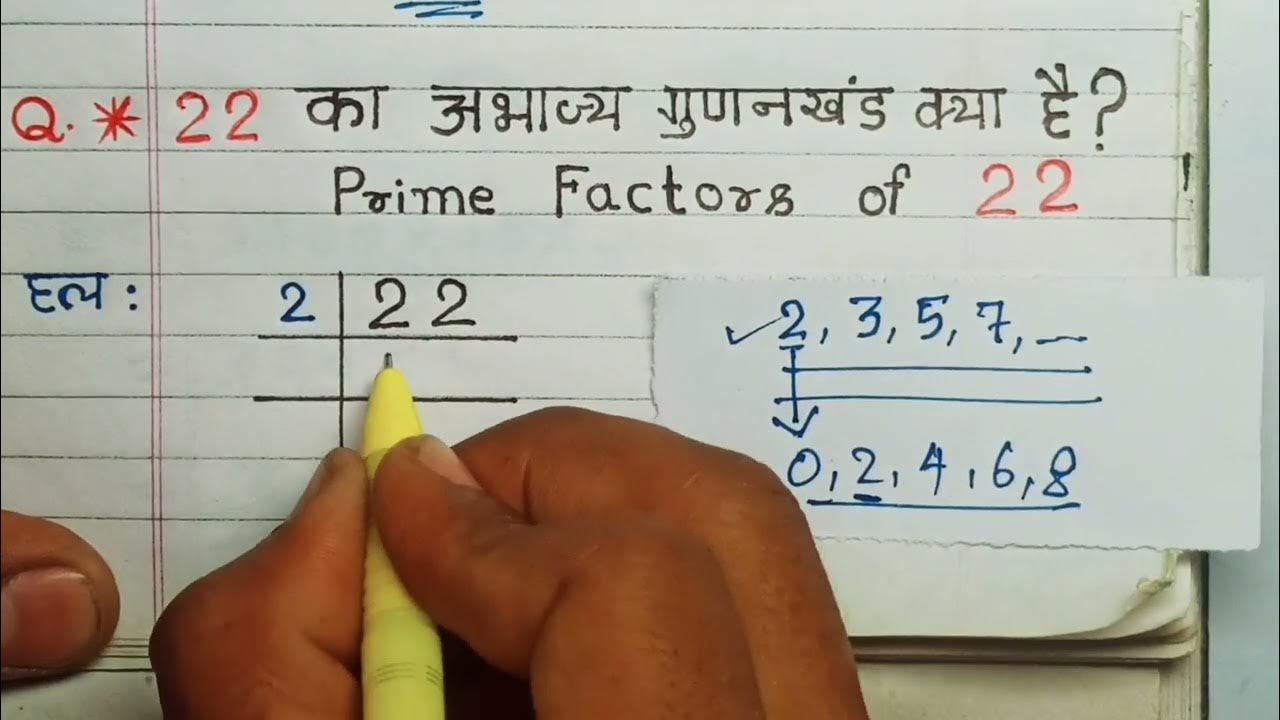 Q. * 22 का अभाज्य गुणनखंड क्या है?
Prime Factors of 22
हल :
2 | 22
✓2, 3, 5, 7, —
0, 2, 4, 6, 8